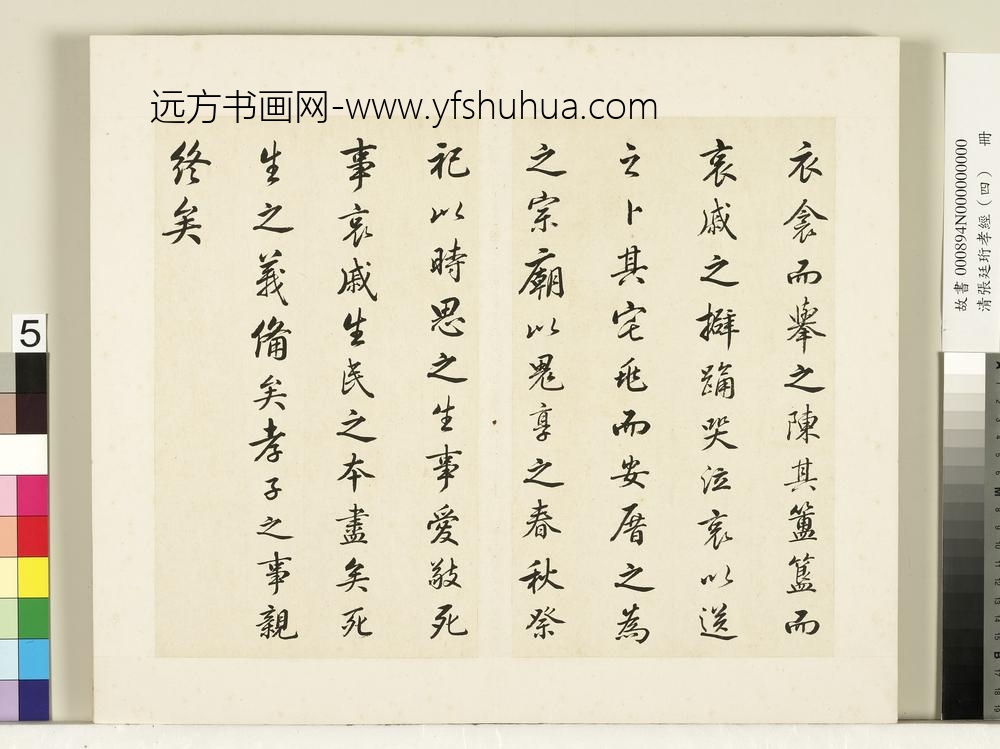 远方书画网-www.yfshuhua.com
衣衾而舉之陳其簠簋而
哀慼之擗踊哭泣哀以送
之卜其宅兆而安厝之為
之宗廟以鬼享之春秋祭
祀以時思之生事愛敬死
事哀慼生民之本盡矣死
生之義備矣孝子之事親
終矣
故書 000894N000000000
清張廷珩孝經(四) 冊
5